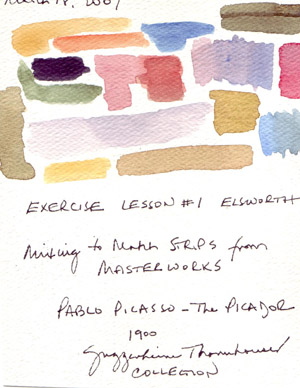 March 18, 2007
EXERCISE LESSON #1 ELSWORTH
Mixing to Match STRIPS from
MASTERWORKS
PABLO PICASSO - The PICADOR
1900
Guggenheim Thannhauser
COLLECTION